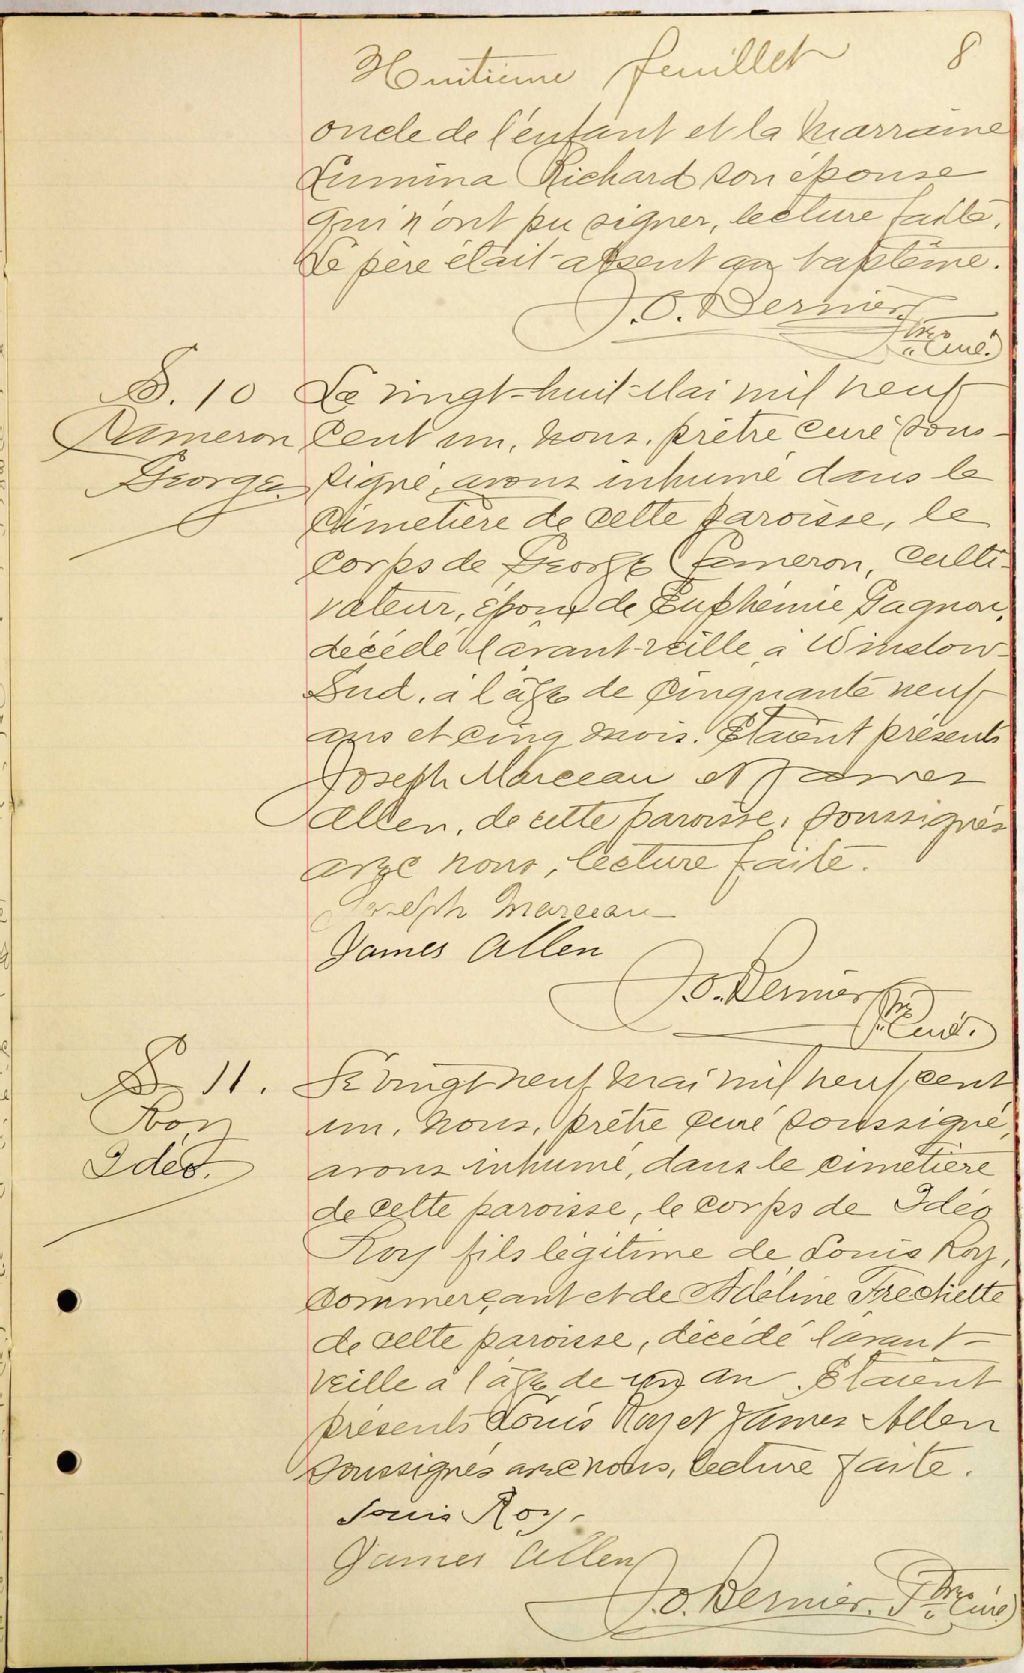 Huitième feuillet 8
oncle de l'enfant et la marraine
Lumina Richard son épouse
qui n'ont pu signer, lecture faite.
Le père était absent au baptême.
J. O. Bernier, Ptre
Curé.
S. 10
Cameron
George.
Le vingt-huit Mai mil neuf
cent un, nous, prêtre curé sous-
signé, avons inhumé dans le
cimetière de cette paroisse, le
corps de George Cameron, culti-
vateur, époux de Euphémie Gagnon,
décédé l'avant-veille à Winslow-
Sud, à l'âge de cinquante neuf
ans et cinq mois. Etaient présents
Joseph Marceau et James
Allen, de cette paroisse, soussignés
avec nous, lecture faite.
Joseph Marceau
James Allen
J. O. Bernier Ptre
Curé.
S 11.
Roy
Idéo.
Le vingt neuf mai mil neuf cent
un, nous, prêtre curé soussigné,
avons inhumé, dans le cimetière
de cette paroisse, le corps de Idéo
Roy fils légitime de Louis Roy,
commerçant et de Adéline Frechette
de cette paroisse, décédé l'avant-
veille à l'âge de un an. Etaient
présents Louis Roy et James Allen
soussignés avec nous, lecture faite.
Louis Roy.
James Allen
J. O. Bernier. Ptre
Curé